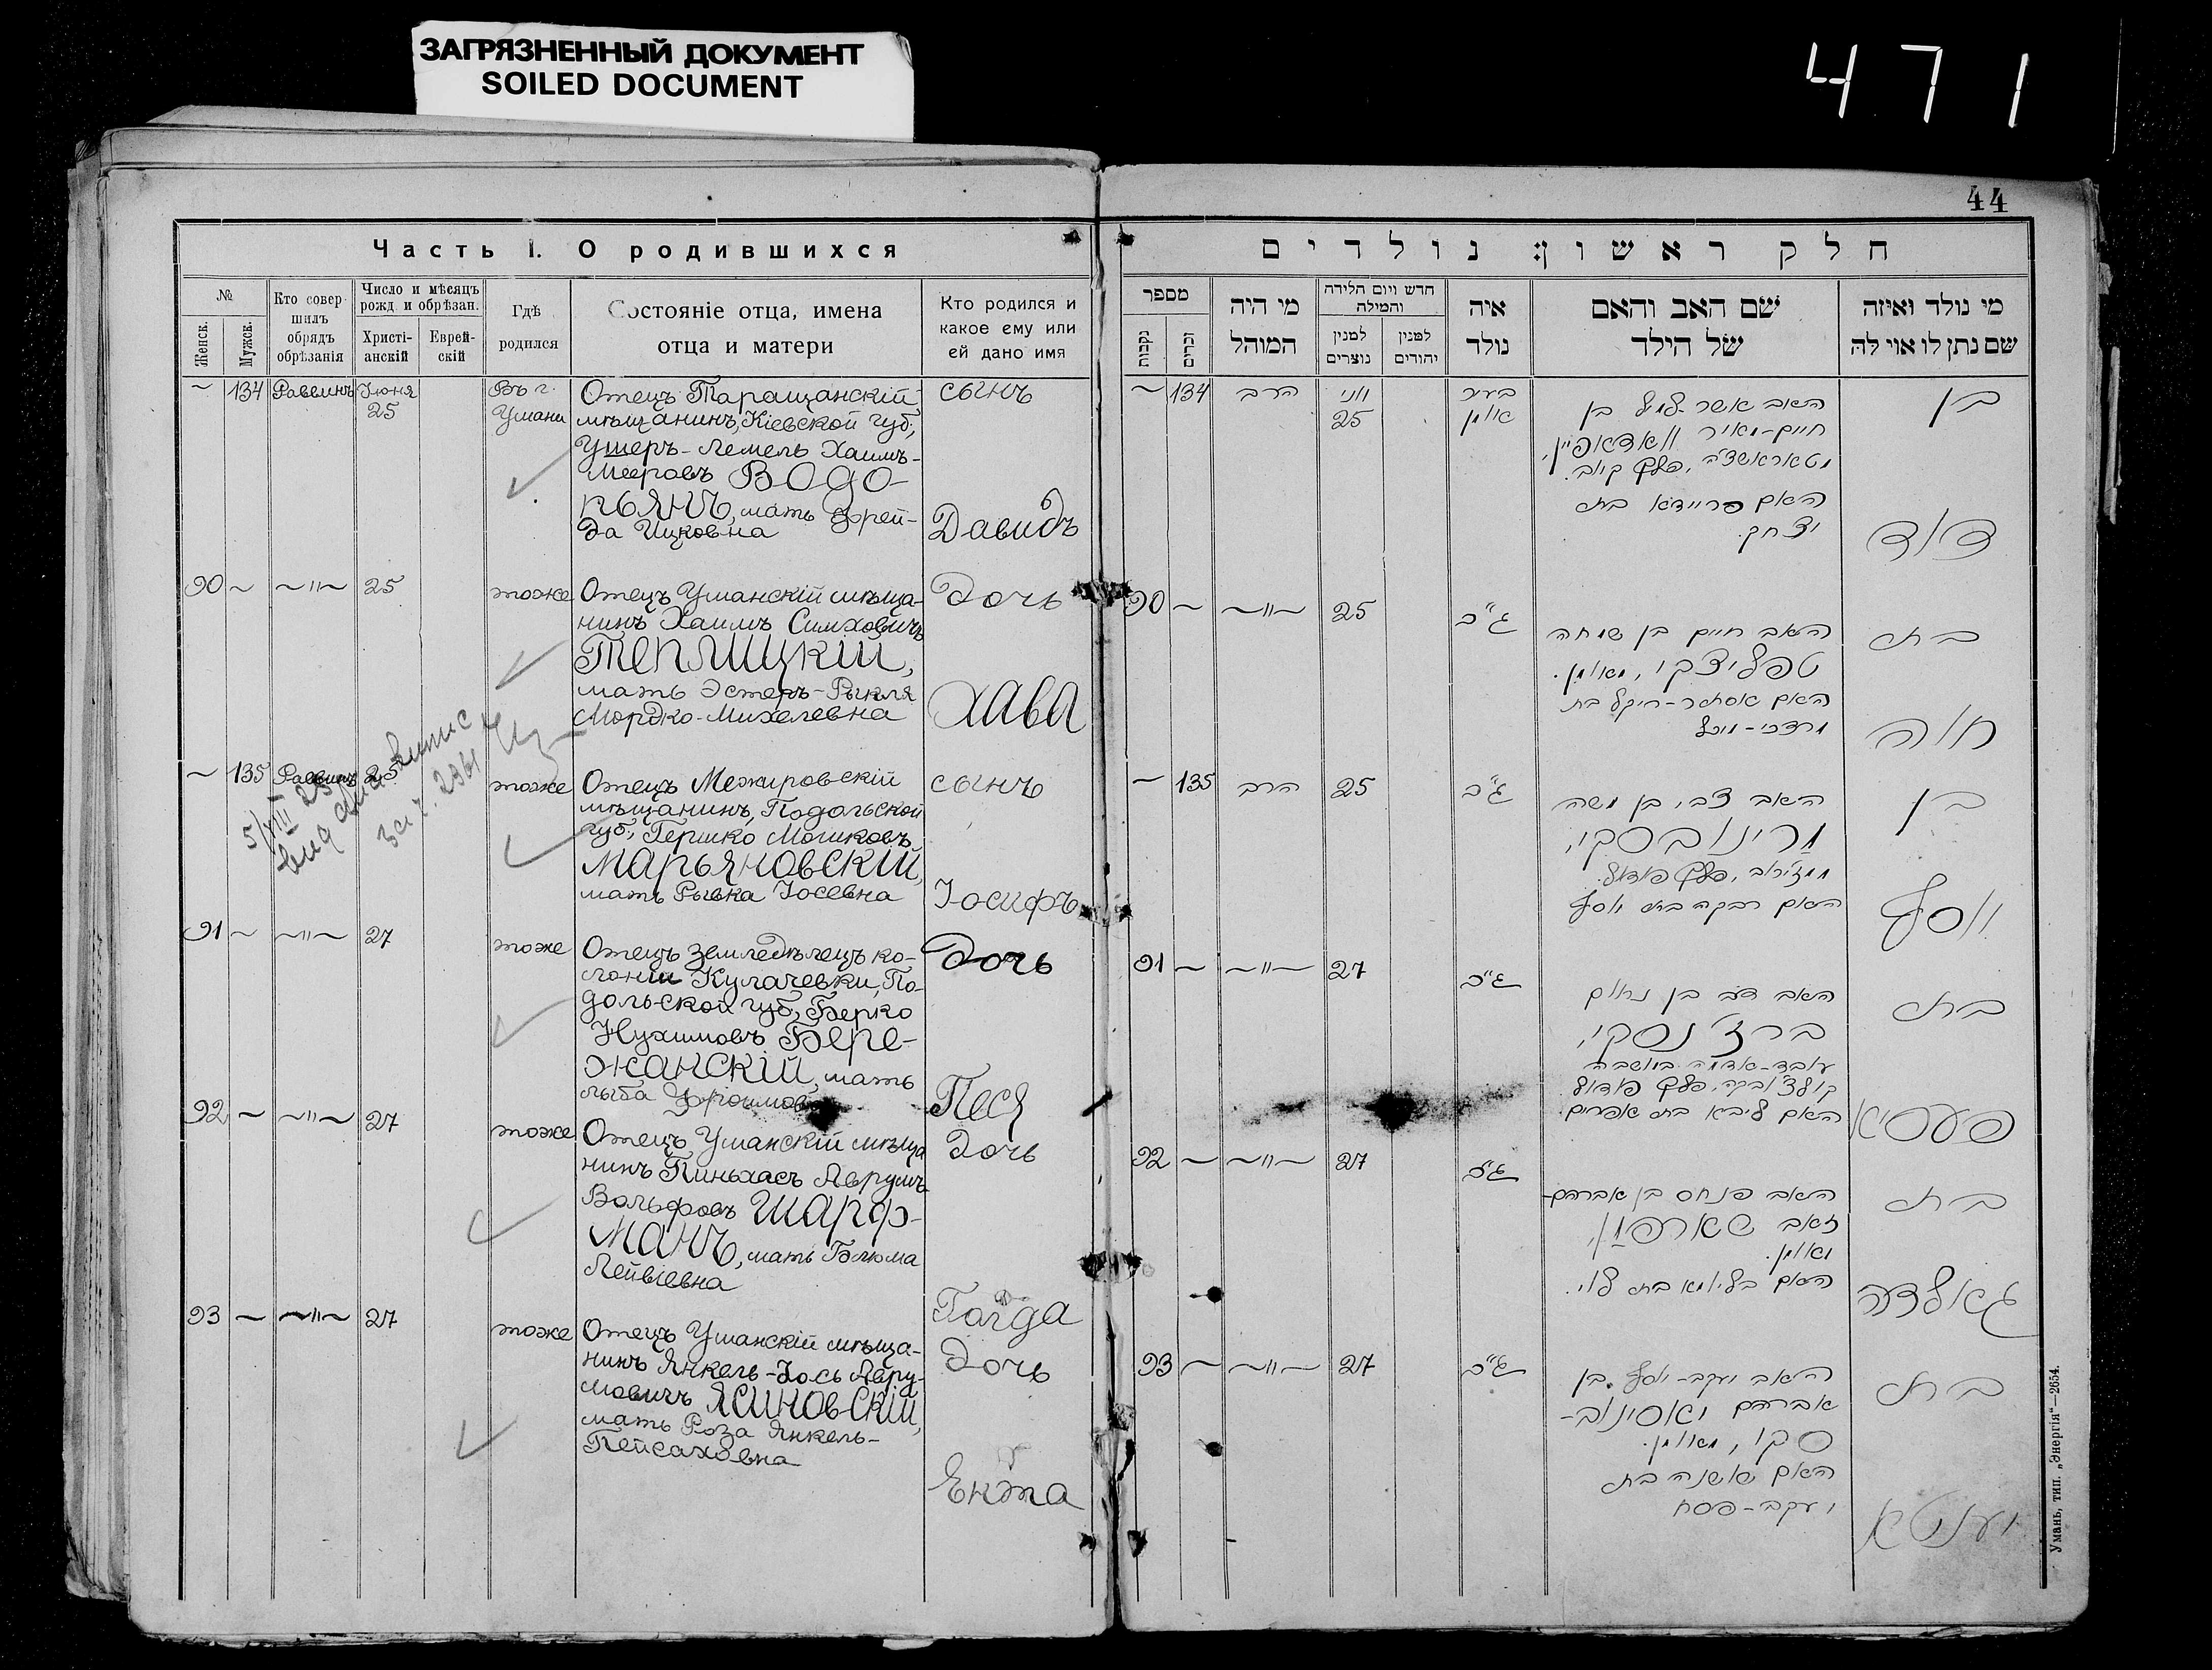 ЗАГРЯЗНЕННЫЙ ДОКУМЕНТ
SOILED DOCUMENT
471
44
Часть I. О родившихся
№
Женск.
Мужск.
Кто совер-
шилъ
обрядъ
обрѣзанія
Число и мѣсяцъ
рожд. и обрѣзан.
Христі-
анскій
Еврей-
скій
Гдѣ
родился
Состояніе отца, имена
отца и матери
Кто родился и
какое ему или
ей дано имя
~ 134 Раввинъ Іюня
25
Въ г.
Умани
Отецъ Таращанскій
мѣщанинъ, Кіевской губ.,
Ушеръ-Лемель Хаимъ-
Мееровъ Водо-
пьянъ, мать Фрей-
да Ицковна
сынъ
Давидъ
90 ~ ~"~ 25
тоже
Отецъ Уманскій мѣща-
нинъ Хаимъ Симховичъ
Теплицкій,
мать Эстеръ-Рыкля
Мордко-Михелевна
Дочь
Хава
~ 135 Раввинъ 25
тоже
Отецъ Межировскій
мѣщанинъ, Подольской
губ., Гершко Мошковъ
Марьяновскій,
мать Рывка Іосевна
сынъ
Іосифъ
91 ~ ~"~ 27
тоже
Отецъ земледѣлецъ ко-
лоніи Кулачевки, По-
дольской губ., Берко
Нухимовъ Бере-
жанскій, мать
Лыба
Дочь
Песя
92 ~ ~"~ 27
тоже
Отецъ Уманскій мѣща
нинъ Пиньхасъ Аврумъ
Вольфовъ Шарф-
манъ, мать Блюма
Лейвіевна
Дочь
Голда
93 ~ ~"~ 27
тоже
Отецъ Уманскій мѣща-
нинъ Янкель-Іось Авру-
мовичъ Ясиновскій,
мать Роза Янкель-
Пейсаховна
Дочь
Ента
חלק ראשון: נולדים
מספר
נקבות
זכרים
מי היה
המוהל
חדש ויום הלידה
והמילה
למנין
נוצרים
למנין
יהודים
איה
נולד
שם האב והאם
של הילד
מי נולד ואיזה
שם נתן לו או לה
~ 134 הרב יוני
25
בעיר
אומן
האב אשר-למל בן
חיים-מאיר וואדאפיין,
מטאראשצה, פלך קיוב.
האם פריידא בת
יצחק.
בן
דוד
90 ~ ~"~ 25
ג"כ
האב חיים בן שמחה
טפליצקי, מאומן.
האם אסתר-ריקל בת
מרדכי-מיכל
בת
חוה
~ 135 הרב 25
ג"כ
האב צבי בן משה
מרינובסקי,
ממזירוב, פלך פודול.
האם רבקה בת יוסף
בן
יוסף
91 ~ ~"~ 27
ג"כ
האב דב בן נחום
ברז'נסקי,
עובד-אדמה במושבה
קולצ'ובקה, פלך פודול.
האם ליבא בת אפרים.
בת
פעסיא
92 ~ ~"~ 27
ג"כ
האב פנחס בן אברהם-
זאב שארפמן,
מאומן.
האם בלומא בת לוי.
בת
גאלדה
93 ~ ~"~ 27
ג"כ
האב יעקב-יוסף בן
אברהם יאסינוב-
סקי, מאומן.
האם שושנה בת
יעקב-פסח
בת
יענטא
Умань, тип. „Энергія“—2654.